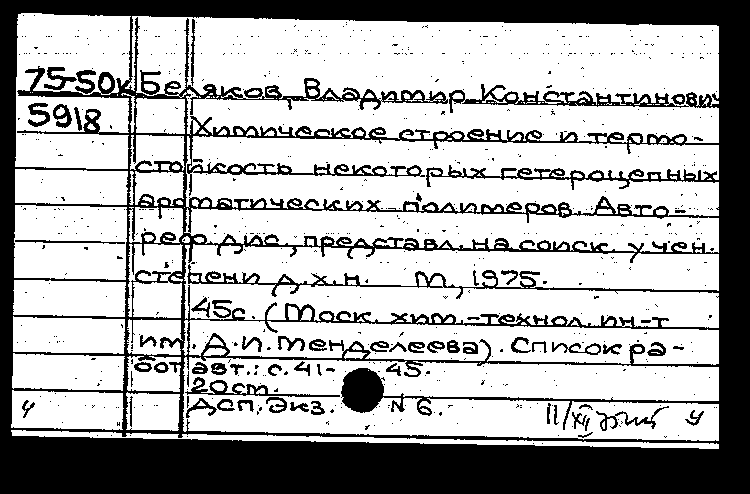 75-50К Беляков, Владимир Константинович
5918.
Химическое строение и термо-
стойкость некоторых гетероцепных
ароматических полимеров. Авто-
реф. дис., представл. на соиск. учен.
степени д.х.н. М., 1975.
45с. (Моск. хим.-технол. ин-т
им. Д.И. Менделеева). Список ра-
бот авт.: с. 41-45.
20см.
ДСП. Экз. N 6.
ч II/XII ч